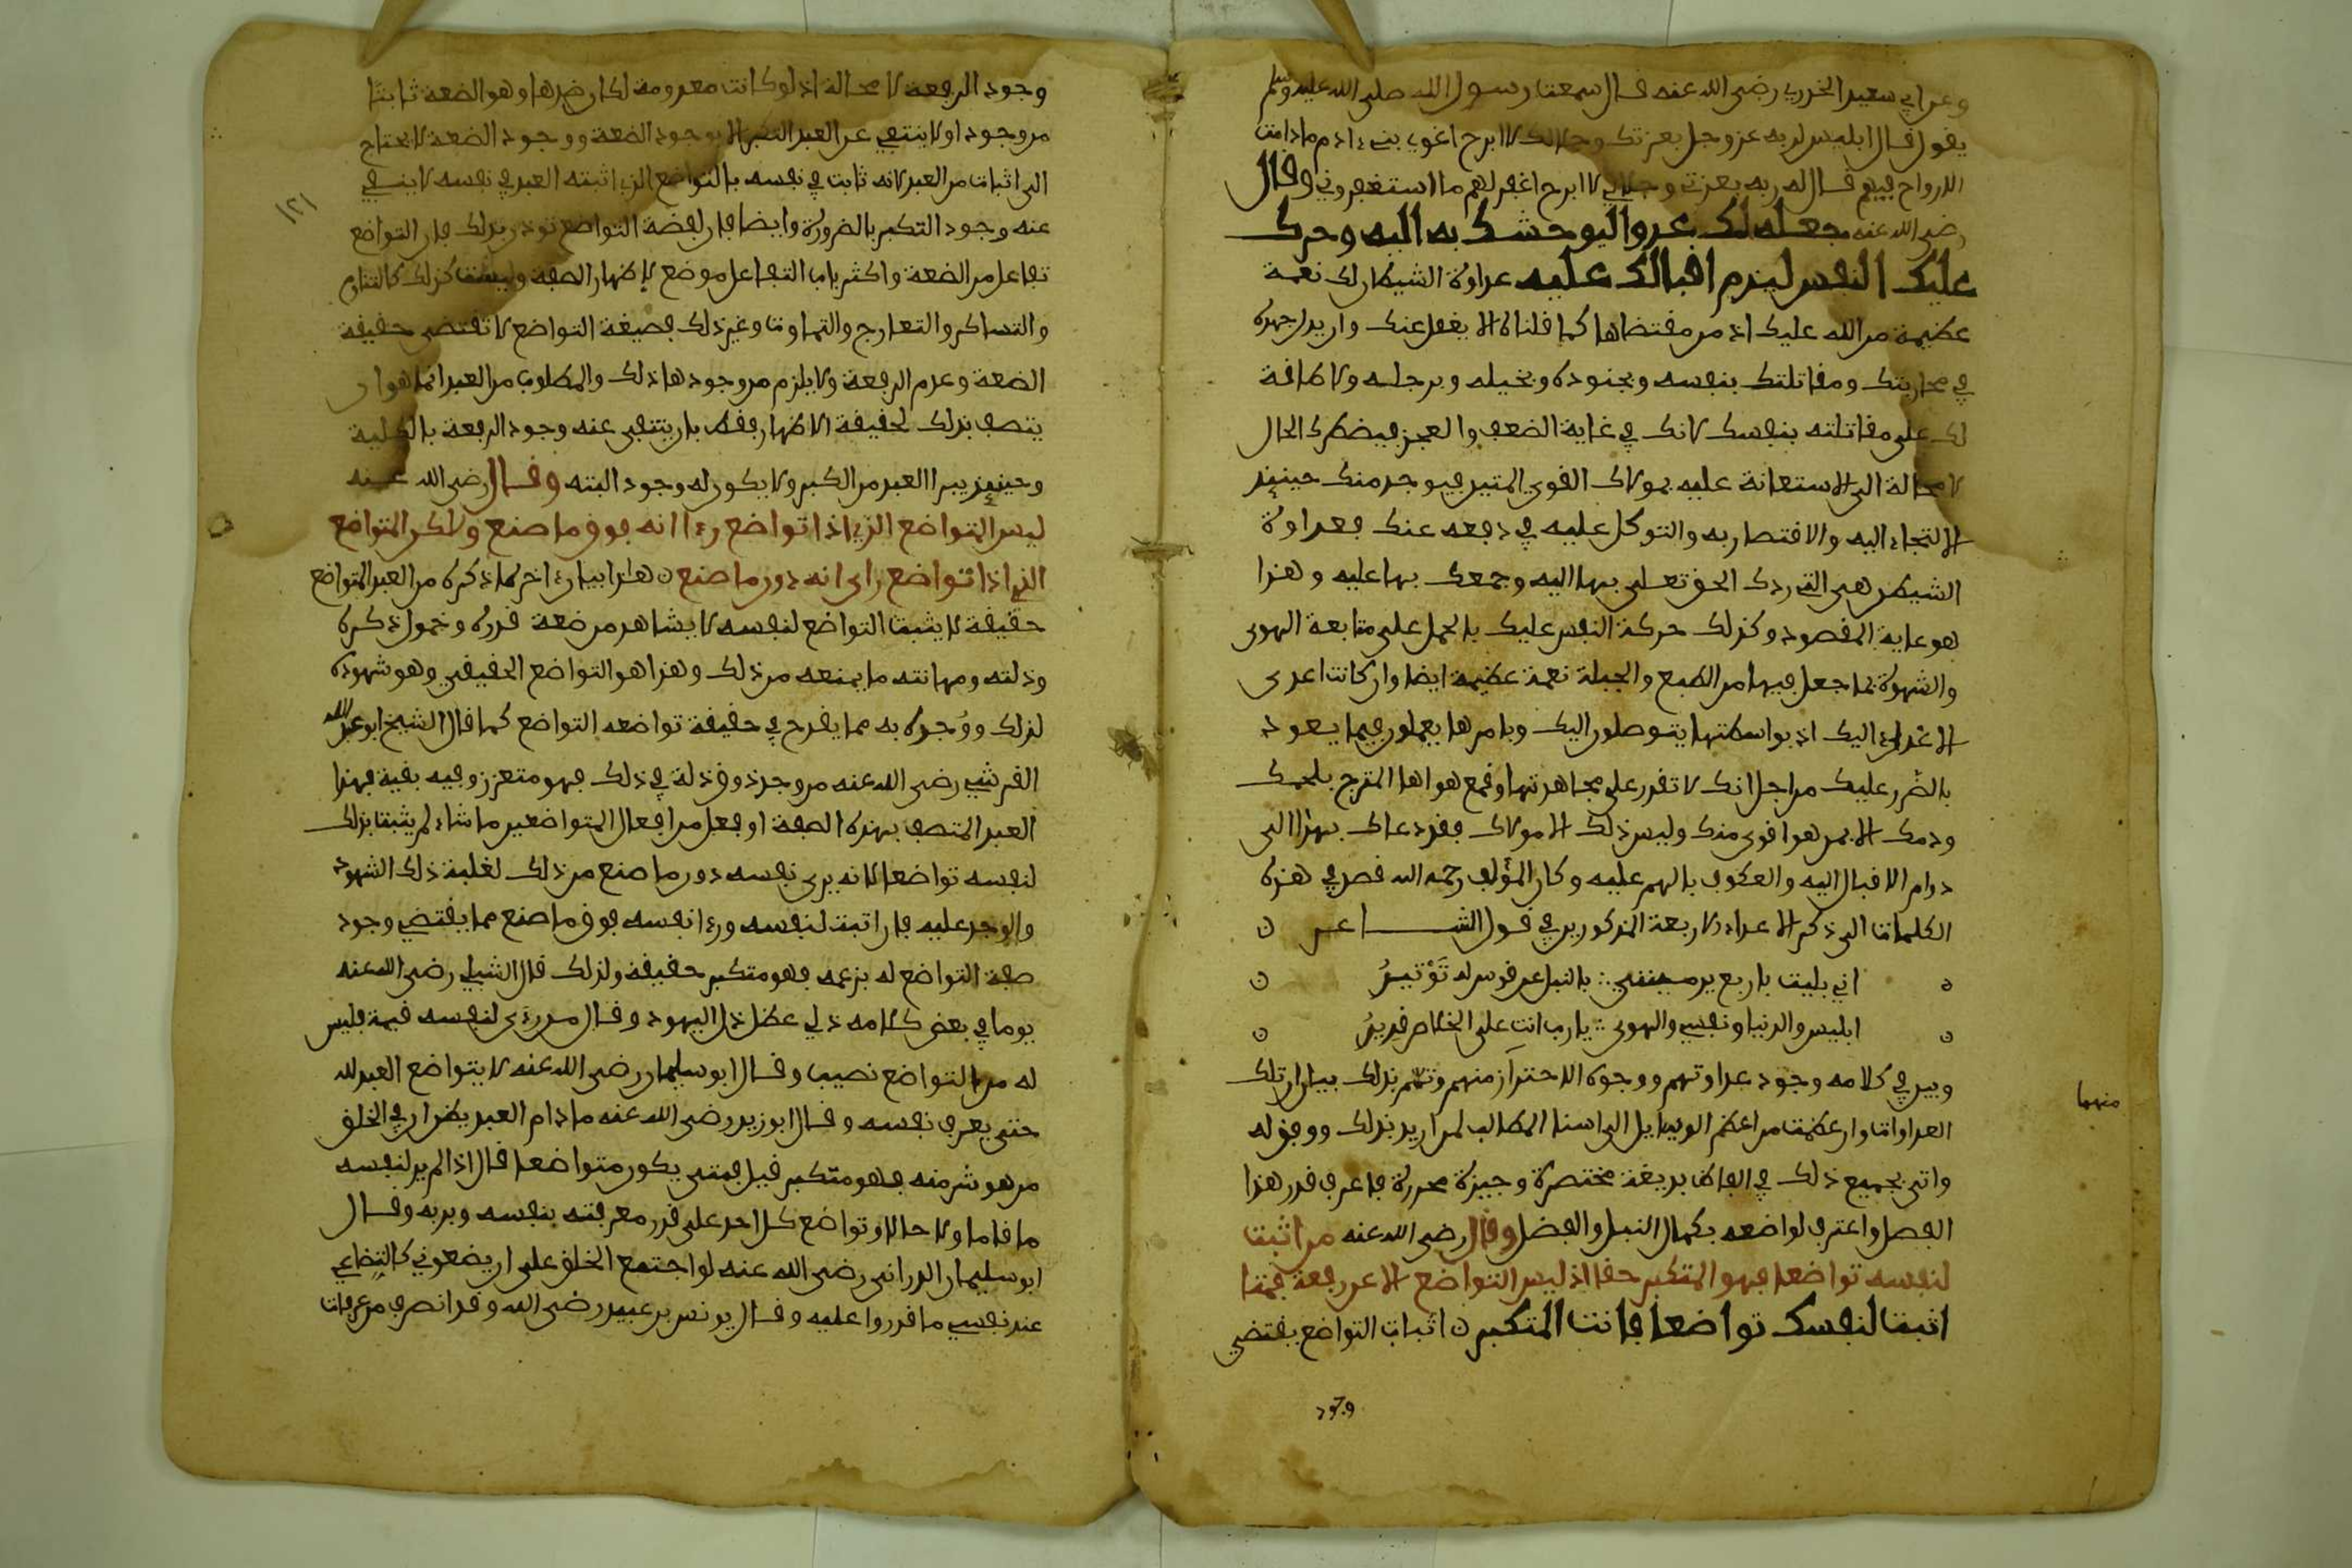 وعن ابي سعيد الخدري رضي الله عنه قال سمعت رسول الله صلى الله عليه وسلم
يقول قال ابليس لربه عز وجل بعزتك وجلالك لا ابرح اغوي بني ءادم ما دامت
الارواح فيهم قال له ربه بعزتي وجلالي لا ابرح اغفر لهم ما استغفروني وقال
رضي الله عنه جعله لك عدوا ليوحشك به اليه وحرك
عليك النفس ليدم اقبالك عليه عداوة الشيطان لك نعمة
عظيمة من الله عليك اذ من مقتضاها كما قلناه الا يغفل عنك وان يبذل جهده
في محاربتك ومقاتلتك بنفسه وبجنوده وبخيله وبرجله ولا طاقة
لك على مقاتلته بنفسك لانك في غاية الضعف والعجز فيضطرك الحال
لا محالة الى الاستعانة عليه بمولاك القوي المتين فيوجد منك حينئذ
الالتجاء اليه والانتصار به والتوكل عليه في دفعه عنك فعداوة
الشيطان هي التي ردك الحق تعلى بها اليه وجمعك بها عليه وهذا
هو غاية المقصود وكذلك حركة النفس عليك بالحمل على متابعة الهوى
والشهوة بما جعل فيها من الطبع والجبلة نعمة عظيمة ايضا وان كانت اعدى
الاعداء اليك اذ بواسطتها يتوصلون اليك وبامرها يعملون فيما يعود
بالضرر عليك من اجل انك لا تقدر على مجاهدتها وقمع هواها الممتزج بلحمك
ودمك الا بمن هو اقوى منك وليس ذلك الا مولاك فقد دعاك بهذا الى
دوام الاقبال اليه والعكوف بالهم عليه وكان المؤلف رحمه الله قصد في هذه
الكلمات الى ذكر الاعداء الاربعة المذكورين في قول الشاعر ن
اني بليت باربع يرمينني ∴ بالنبل عن قوس له توتير
ابليس والدنيا ونفسي والهوى ∴ يا رب انت على الخلاص قدير
وبين في كلامه وجود عداوتهم ووجوه الاحتراز منهم وتمم بذلك بيان ان تلك
العداوات وان عظمت من اعظم الوسايل الى اسنا المطالب لمن اريد بذلك ووفق له
منهما
واتى بجميع ذلك في الفاظ بديعة مختصرة وجيزة محررة فاعرف قدر هذا
الفصل واعترف لواضعه بكمال النبل والفضل وقال رضي الله عنه من اثبت
لنفسه تواضعا فهو المتكبر حقا اذ ليس التواضع الا عن رفعة فمتا
اثبت لنفسك تواضعا فانت المتكبر ن اثبات التواضع يقتضي
وجود
١٢١
وجود الرفعة لا محالة اذ لو كانت معدومة لكان ضدها وهو الضعة ثابتا
موجودا ولا ينتفي عن العبد التكبر الا بوجود الضعة ووجود الضعة لا يحتاج
الى اثبات من العبد لانه ثابت في نفسه بالتواضع الذي اثبته العبد في نفسه لا ينفي
عنه وجود التكبر بالضرورة وايضا فان لفضة التواضع توذن بذلك فان التواضع
تفاعل من الضعة واكثر باب التفاعل موضع لإظهار الصفة وليست كذلك كالتناوم
والتساكر والتعارج والتماوت وغير ذلك فصيغة التواضع لا تقتضي حقيقة
الضعة وعدم الرفعة ولا يلزم من وجودها ذلك والمطلوب من العبد انما هو ان
يتصف بذلك لحقيقة الاظهار فقط بان ينتفي عنه وجود الرفعة بالكلية
وحينئذ يبرا العبد من الكبر ولا يكون له وجود البته وقال رضي الله عنه
ليس المتواضع الذي اذا تواضع رءا انه فوق ما صنع ولاكن المتواضع
الذي اذا تواضع راى انه دون ما صنع ن هذا بيان ءاخر لما ذكره من العبد المتواضع
حقيقة لا يثبت التواضع لنفسه لا يشاهد من ضعة قدره وخمول ذكره
وذلته ومهانته ما يمنعه من ذلك وهذا هو التواضع الحقيقي وهو شهوده
لذلك ووجده به مما يقدح في حقيقة تواضعه التواضع كما قال الشيخ ابو عبد الله
القرشي رضي الله عنه من وجد ذوق ذلة في ذلك فهو متعزز وفيه بقية فهذا
العبد المتصف بهذه الصفة او فعل من افعال المتواضعين ما شاء لم يثبت بذلك
لنفسه تواضعا لانه يرى نفسه دون ما صنع من ذلك لغلبة ذلك الشهود
والوجد عليه فان اثبت لنفسه ورءا نفسه فوق ما صنع مما يقتضي وجود
صفة التواضع له بزعمه فهو متكبر حقيقة ولذلك قال الشبلي رضي الله عنه
يوما في بعض كلامه ذلي عطل ذل اليهود وقال من رءى لنفسه قيمة فليس
له من التواضع نصيب وقال ابو سليمان رضي الله عنه لا يتواضع العبد لله
حتى يعرف نفسه وقال ابو زيد رضي الله عنه ما دام العبد يظن ان في الخلق
من هو شر منه فهو متكبر قيل فمتى يكون متواضعا قال اذا لم ير لنفسه
مقاما ولا حالا وتواضع كل احد على قدر معرفته بنفسه وبربه وقال
ابو سليمان الدراني رضي الله عنه لو اجتمع الخلق على ان يضعوني كاتضاعي
عند نفسي ما قدروا عليه وقال يونس بن عبيد رضي الله وقد انصرف من عرفات